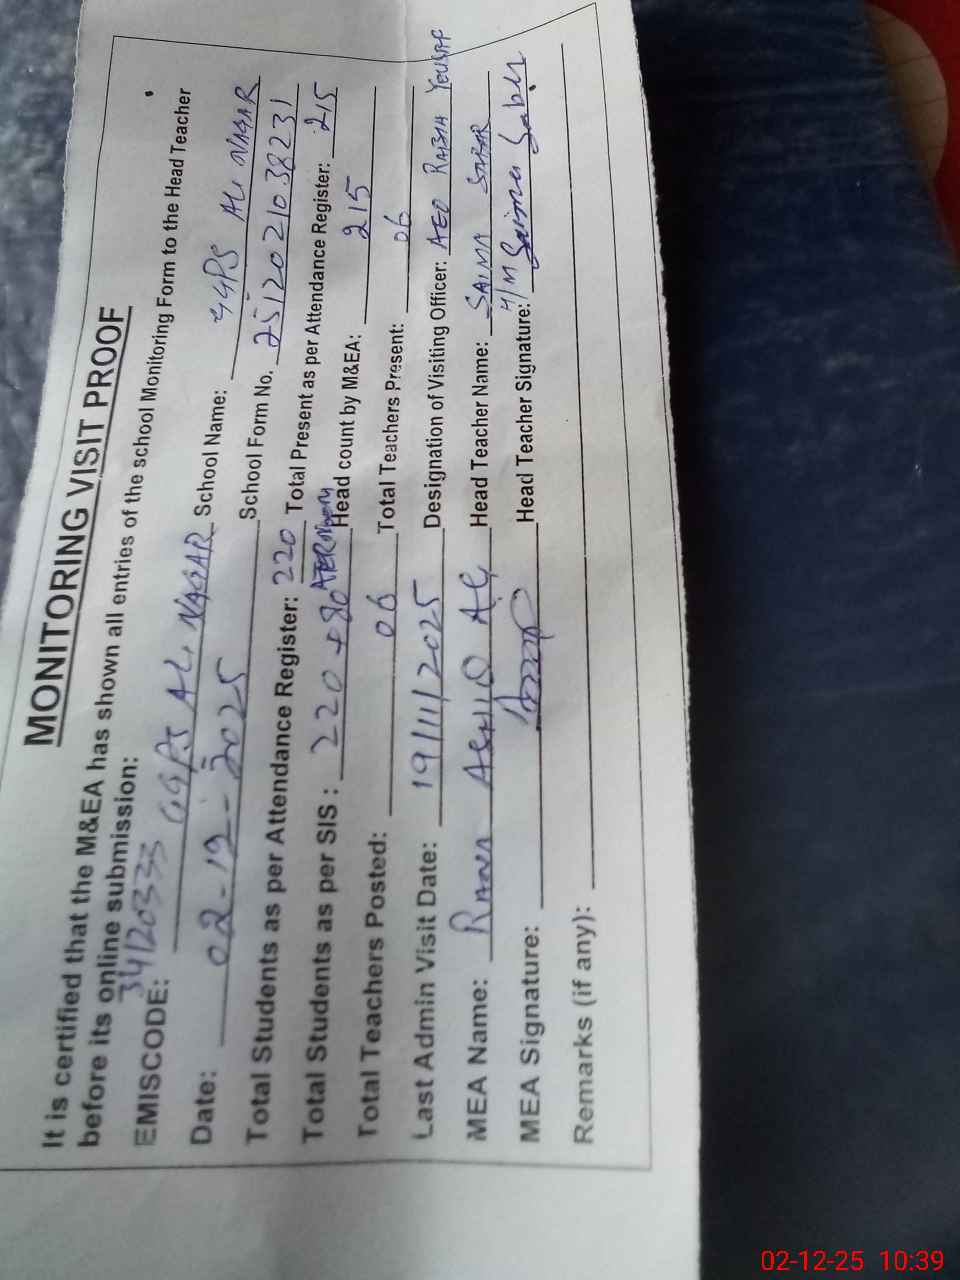 MONITORING VISIT PROOF
It is certified that the M&EA has shown all entries of the school Monitoring Form to the Head Teacher
before its online submission:
EMISCODE: 34120333 GGPS ALI NAGAR School Name: GGPS ALI NAGAR
Date: 02-12-2025 School Form No. 2512021038231
Total Students as per Attendance Register: 220 Total Present as per Attendance Register: 215
Total Students as per SIS : 220 + 80 AFTERNOON Head count by M&EA: 215
Total Teachers Posted: 06 Total Teachers Present: 06
Last Admin Visit Date: 19/11/2025 Designation of Visiting Officer: AEO RABIA YOUSAF
MEA Name: RANA Head Teacher Name: SAIMA SABAR
MEA Signature: Head Teacher Signature: H/M Saima Saber
Remarks (if any):
02-12-25 10:39